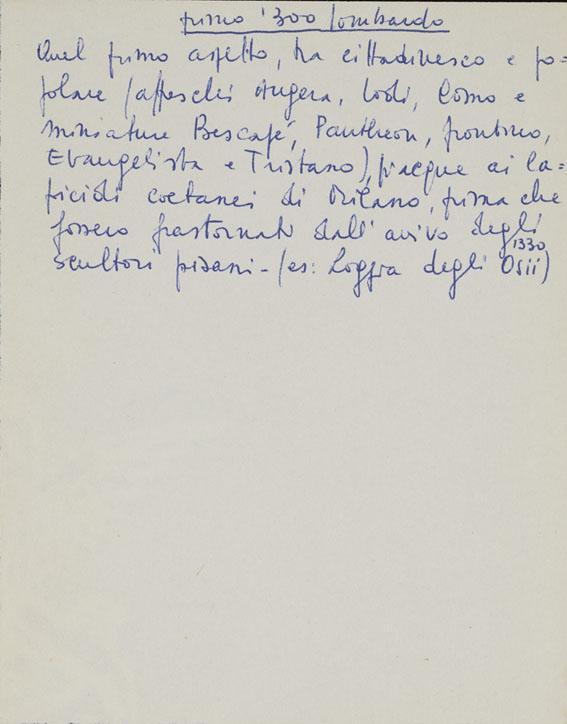 primo '300 lombardo
Quel primo aspetto, tra cittadinesco e po=
polare (affreschi Angera, Lodi, Como e
miniature Bescapé, Pantheon, frontino,
Evangelista e Tristano), piacque ai la=
picidi coetanei di Milano, prima che
fossero frastornati dall'arrivo degli
scultori pisani - (es: Loggia degli Osii)
1330